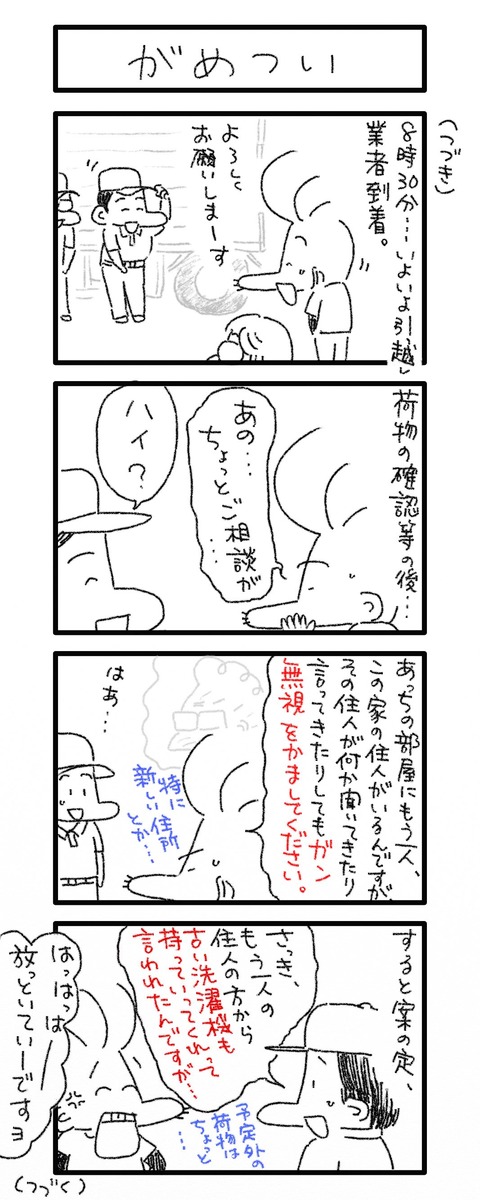 がめつい
(つづき)
8時30分…いよいよ引越し
業者到着。
よろしく
お願いしまーす
荷物の確認等の後…
あの…
ちょっとご相談が
…
ハイ?
あっちの部屋にもう一人、
この家の住人がいるんですが、
その住人が何か聞いてきたり
言ってきたりしてもガン
無視をかましてください。
特に
新しい住所
とか…
はぁ…
すると案の定、
さっき、
もう一人の
住人の方から
古い洗濯機も
持っていってくれって
言われたんですが…
予定外の
荷物は
ちょっと
…
はっはっは
放っといていーですョ
(つづく)